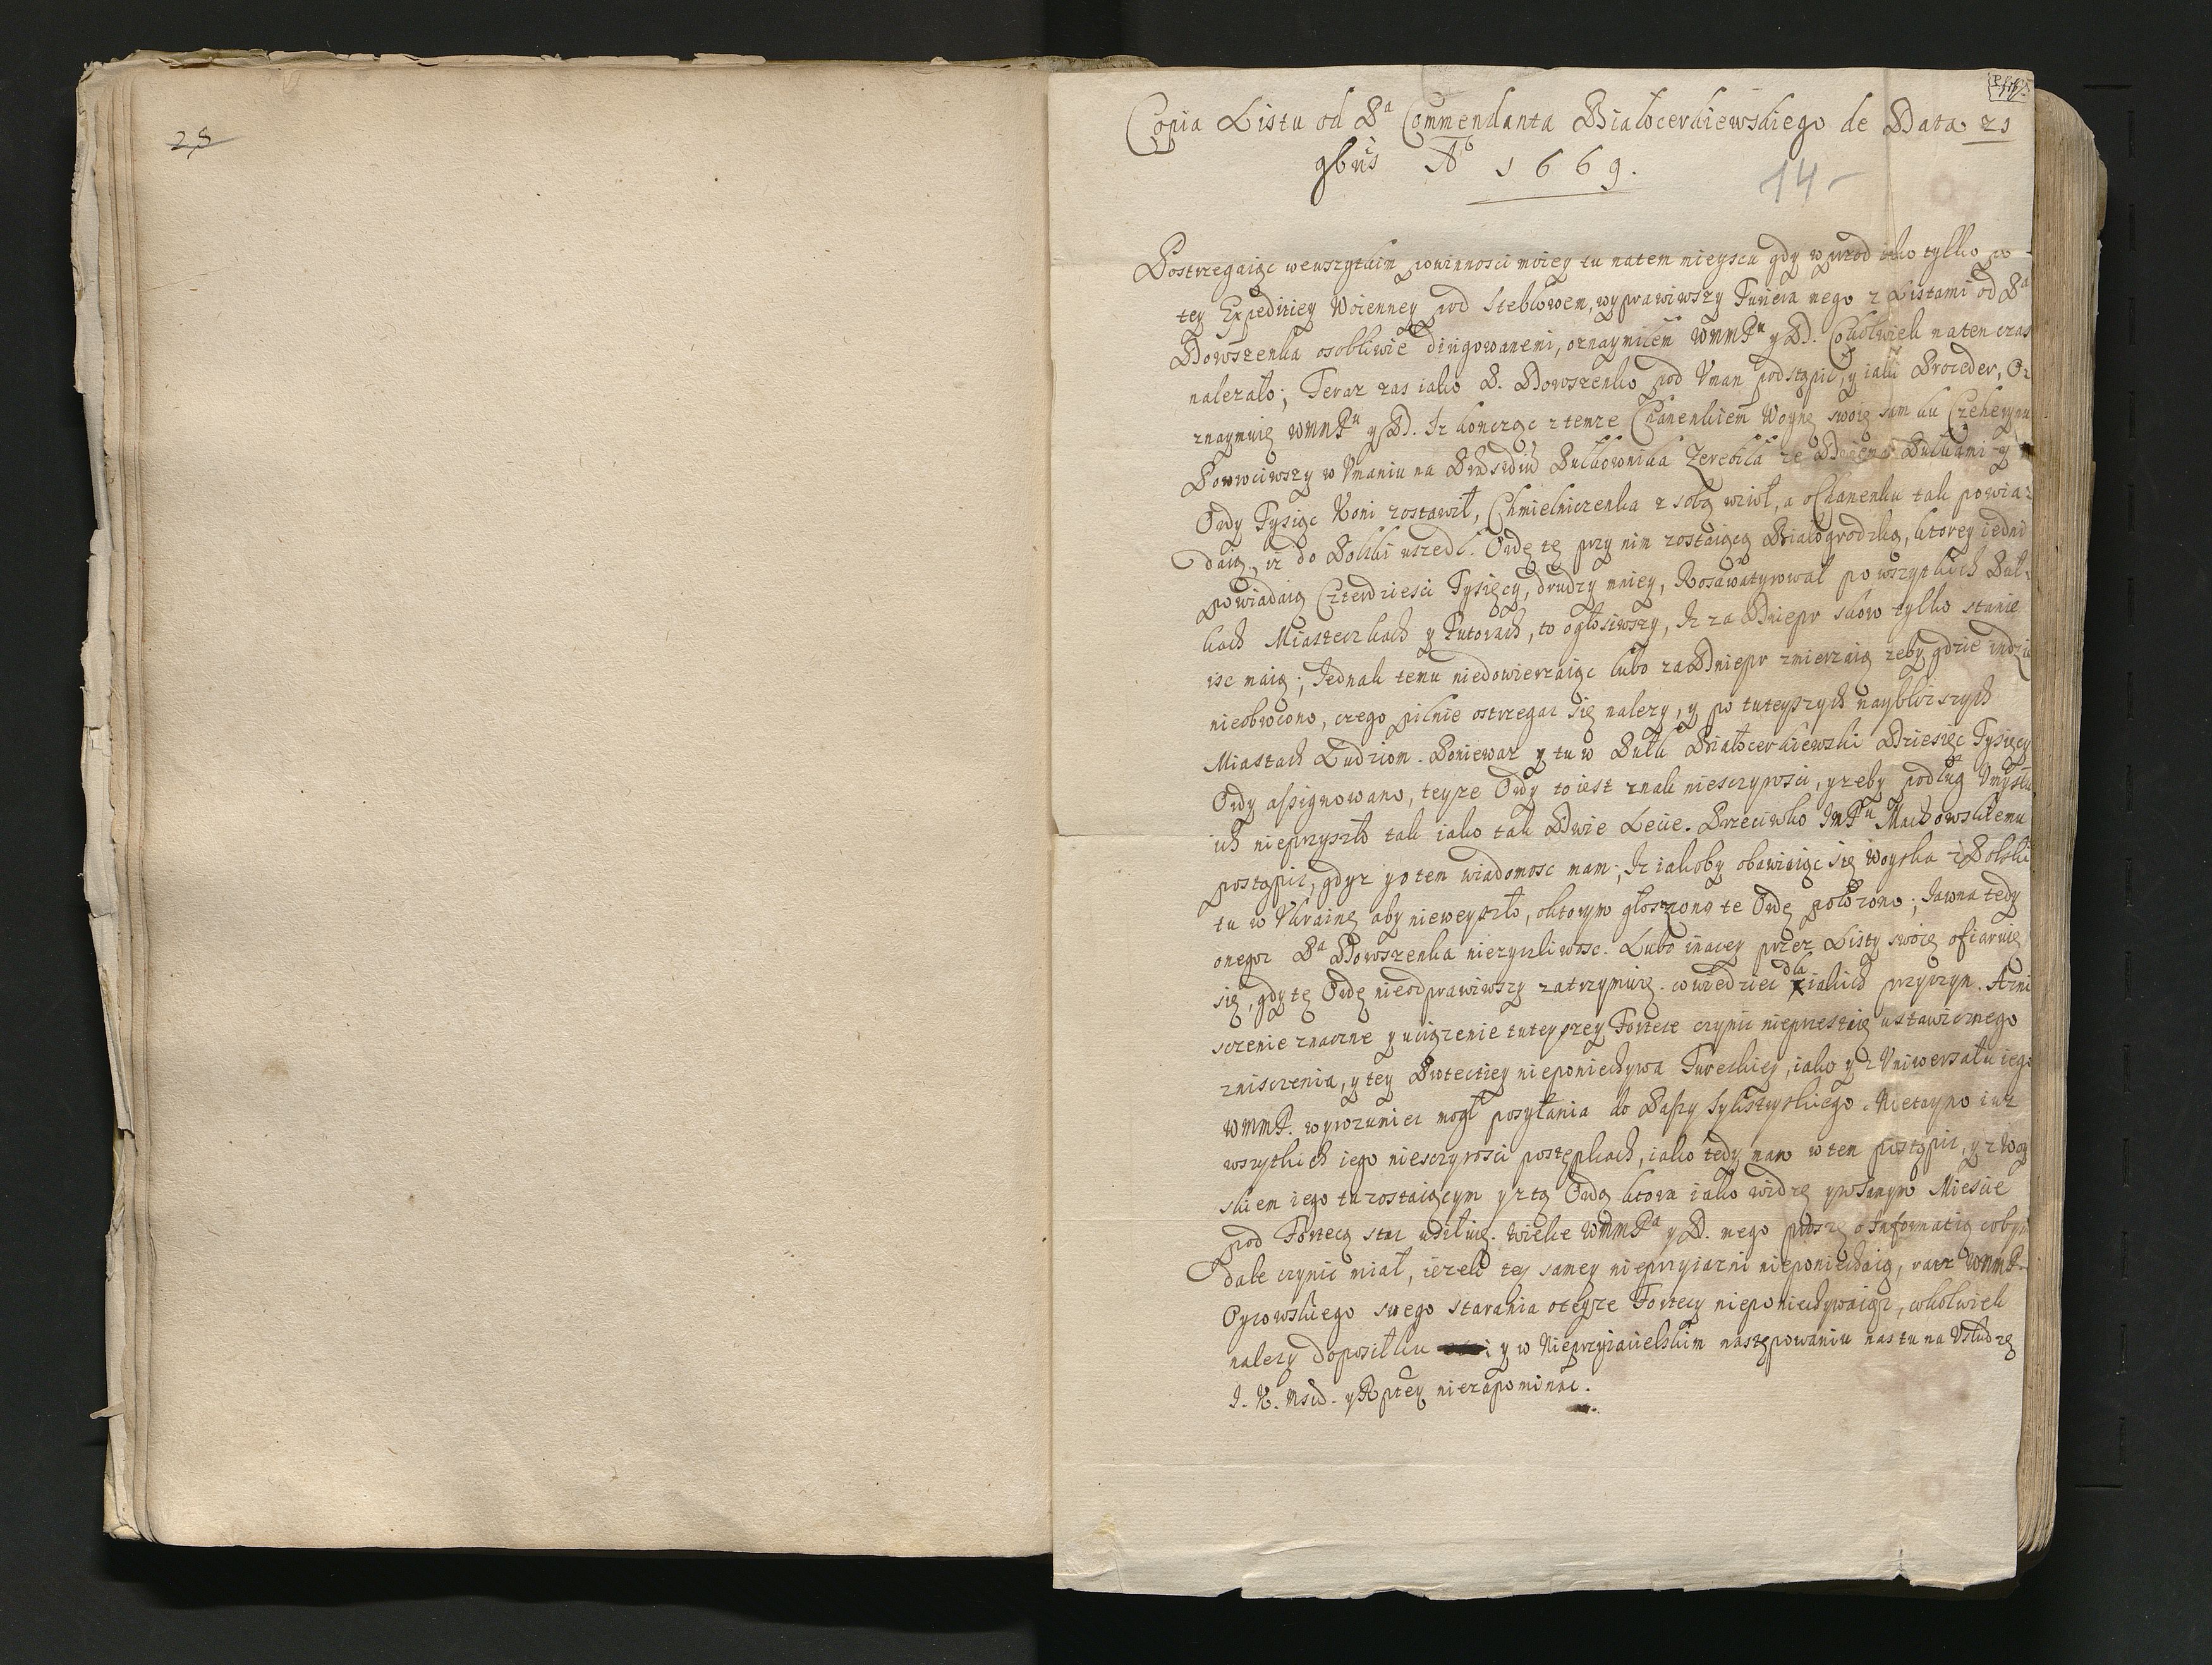 28
Copia Listu od Pa Commendanta Białocerkiewskiego de Data 21
9bris Ao 1669.
14
Postrzegaiąc wewszytkim powinnosci moiey tu natem mieyscu gdy wprzod iako tylko po
tey Expeditiey Woienney pod Steblowem, wyprawiwszy Furiera mego z Listami od Pa
Dowszenka osobliwie dirigowanemi, oznaymiłem WMMPu y D. Cokolwiek naten czas
nalezało; Teraz zas iako P. Dowszenko pod Uman podstąpił, y iaki Proceder, O:
znaymuię WMMPu y D. Iz koncząc z temze Chanenkiem Woynę swoię sam ku Czehrynu
Powrociwszy w Umaniu na Praesidiu Pułkownika Zerebiła ze Pułkami y
Ordy Tysiąc Koni zostawił, Chmielniczenka z sobą wziął, a o Chanenku tak powia:
daią, iz do Polski uszedł. Ordę tę przy nim zostaiącą Białogrodzką, ktorey iedni
powiadaią Czterdziesci Tysięcy, drudzy mniey, Roskwatyrował po wszytkich Puł:
kach Miasteczkach y Futorach, to ogłosiwszy, Iz za Dniepr skoro tylko stanie
isc maią; Iednak temu niedowierzaiąc lubo za Dniepr zmierzaią zeby gdzie indzie
nieobrocono, czego pilnie ostrzegac się nalezy, y po tuteyszych nayblizszych
Miastach Ludziom. Poniewaz y tu w Pułk Białocerkiewski Dziesięc Tysięcy
Ordy assignowano, teysze Ordy to iest znak nieszczyrosci, y zeby podług Umysłu
ich nieprzyszło tak iako tak Dwie Lecie. Przeciwko ImPu Machowskiemu
postąpił, gdyz y o tem wiadomosc mam; Iz iakoby obawiaiąc się Woyska z Polski
tu w Ukrainę aby nieweyszło, o ktorym głoszono te Ordę połozono; Iawna tedy
onegoz Pa Dowszenka niezyczliwosc. Lubo inaczey przez Listy swoie ofiaruie
się, gdy tę Ordę nieodprawiwszy zatrzymuie. co wiedziec dla iakich przyczyn. A zni
szczenie znaczne y uciązenie tuteyszey Fortece czynic nieprzestaie ustawicznego
zniszczenia, y tey Protectiey nieponiechywa Tureckiey, iako y z Uniwersału iego
WMMP. wyrozumiec mogł posyłania do Baszy Sylistryskiego. Nietayno iuz
wszytkich iego nieszczyrosci postępkach, iako tedy mam w tem postąpic, y z Woy
skiem iego tu zostaiącym y z tą Ordą ktora iako widzę y w samym Miescie
pod Fortecą stac usiłuie. Wielce WMMPa y D. mego proszę o Informatią cobym
dale czynic miał, iezeli tey samey nieprzyiazni nieponiechaią, racz WMMP.
Oycowskiego swego starania o teysze Fortecy nieponiechywaiąc, cokolwiek
nalezy doposiłku y w Nieprzyiacielskim następowaniu nas tu na Usłudze
I. K. Msci. y Rptey niezapominac.